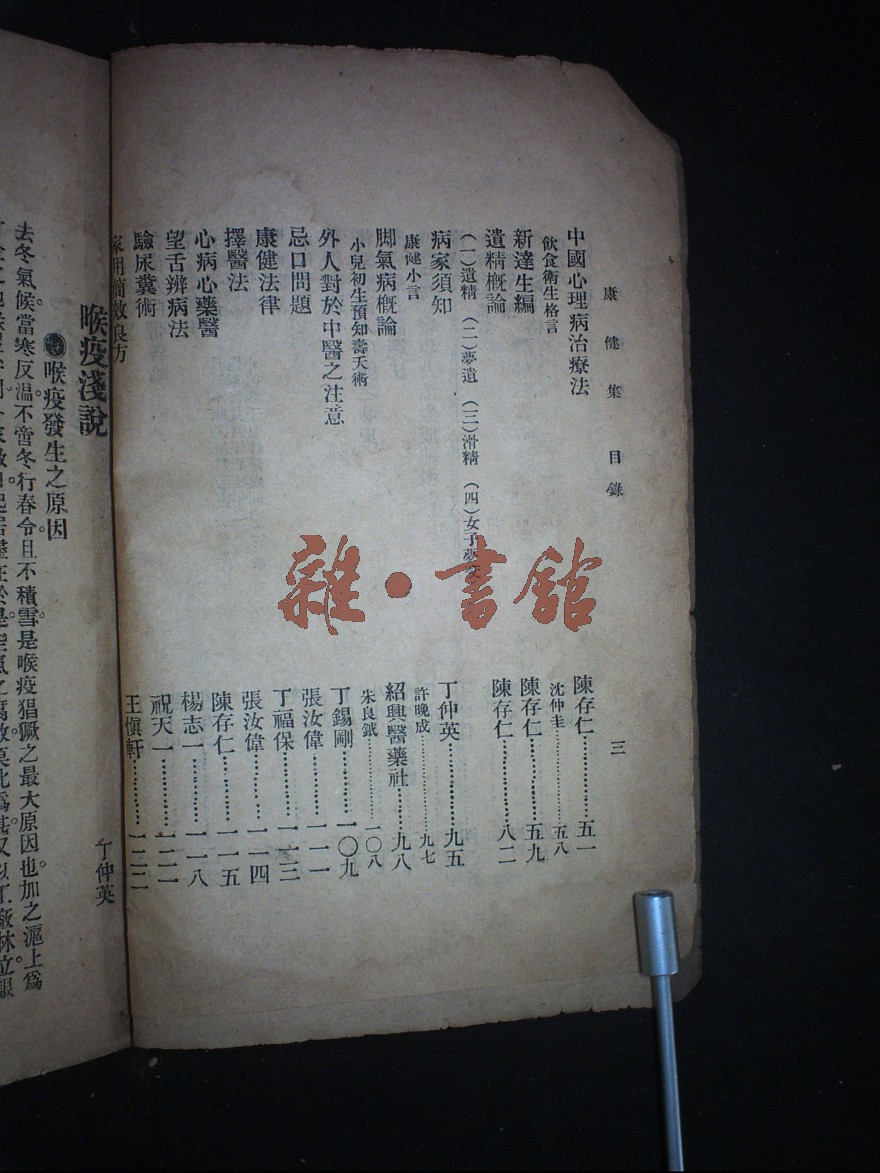 康健集 目錄 三
中國心理病治療法 陳存仁…………五一
飲食衛生格言 沈仲圭…………五八
新達生編 陳存仁…………五九
遺精概論 陳存仁…………八二
(一)遺精 (二)夢遺 (三)滑精 (四)女子夢交
病家須知 丁仲英…………九五
康健小言 許晚成…………九七
脚氣病概論 紹興醫藥社…………九八
小兒初生預知壽夭術 朱良鉞…………一〇八
外人對於中醫之注意 丁錫剛…………一〇九
忌口問題 張汝偉…………一一一
康健法律 丁福保…………一一三
擇醫法 張汝偉…………一一四
心病心藥醫 陳存仁…………一一五
望舌辨病法 楊志一…………一一八
驗尿糞術 祝天一…………一二一
家用簡效良方 王愼軒…………一二二
雜·書館
喉疫淺說
丁仲英
喉疫發生之原因
去冬氣候當寒反温。不啻冬行春令。且不積雪。是喉疫猖獗之最大原因也。加之滬上爲